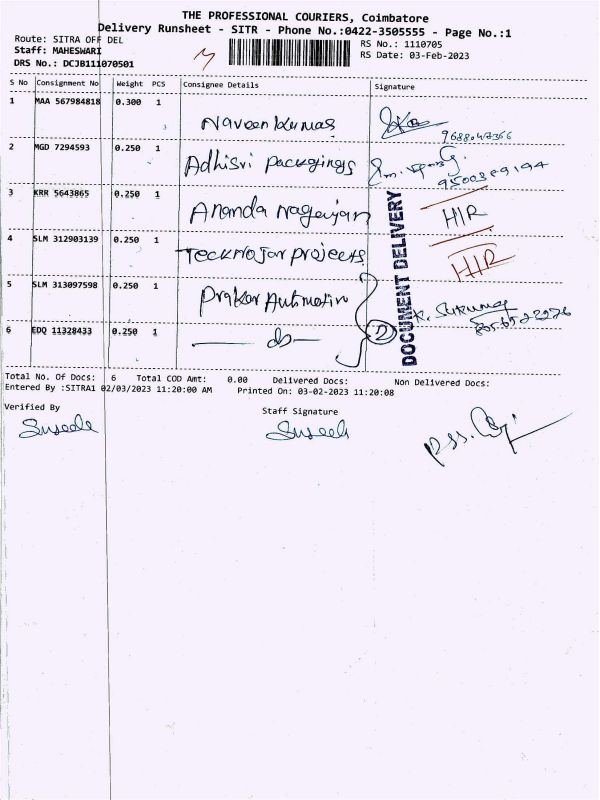 THE PROFESSIONAL COURIERS, Coimbatore
Delivery Runsheet - SITR - Phone No.:0422-3505555 - Page No.:1
Route: SITRA OFF DEL
Staff: MAHESWARI
DRS No.: DCJB111070501
RS No.: 1110705
RS Date: 03-Feb-2023
S No Consignment No Weight PCS Consignee Details Signature
1 MAA 567984818 0.300 1 Naveen Kumar
2 MGD 7294593 0.250 1 Adhisri packagings
3 KRR 5643865 0.250 1 Ananda nagarajan HIR
4 SLM 312903139 0.250 1 Tecknojar projects HIR
5 SLM 313097598 0.250 1 Prakar Automotiv
6 EDQ 11328433 0.250 1 — do — 2
DOCUMENT DELIVERY
Total No. Of Docs: 6 Total COD Amt: 0.00 Delivered Docs: Non Delivered Docs:
Entered By :SITRA1 02/03/2023 11:20:00 AM Printed On: 03-02-2023 11:20:08
Verified By Staff Signature